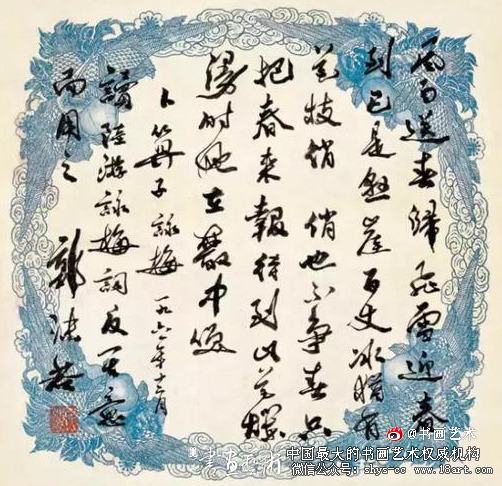 風雨送春歸飛雪迎春
到已是懸崖百丈冰猶有
花枝俏 俏也不爭春只
把春來報待到山花爛
漫時她在叢中笑
卜算子詠梅 一九六一年十二月
讀陸游詠梅詞反其意
而用之 郭沫若
@书画艺术
中国最大的书画艺术权威机构
微信公众号：shys-cc www.18art.com